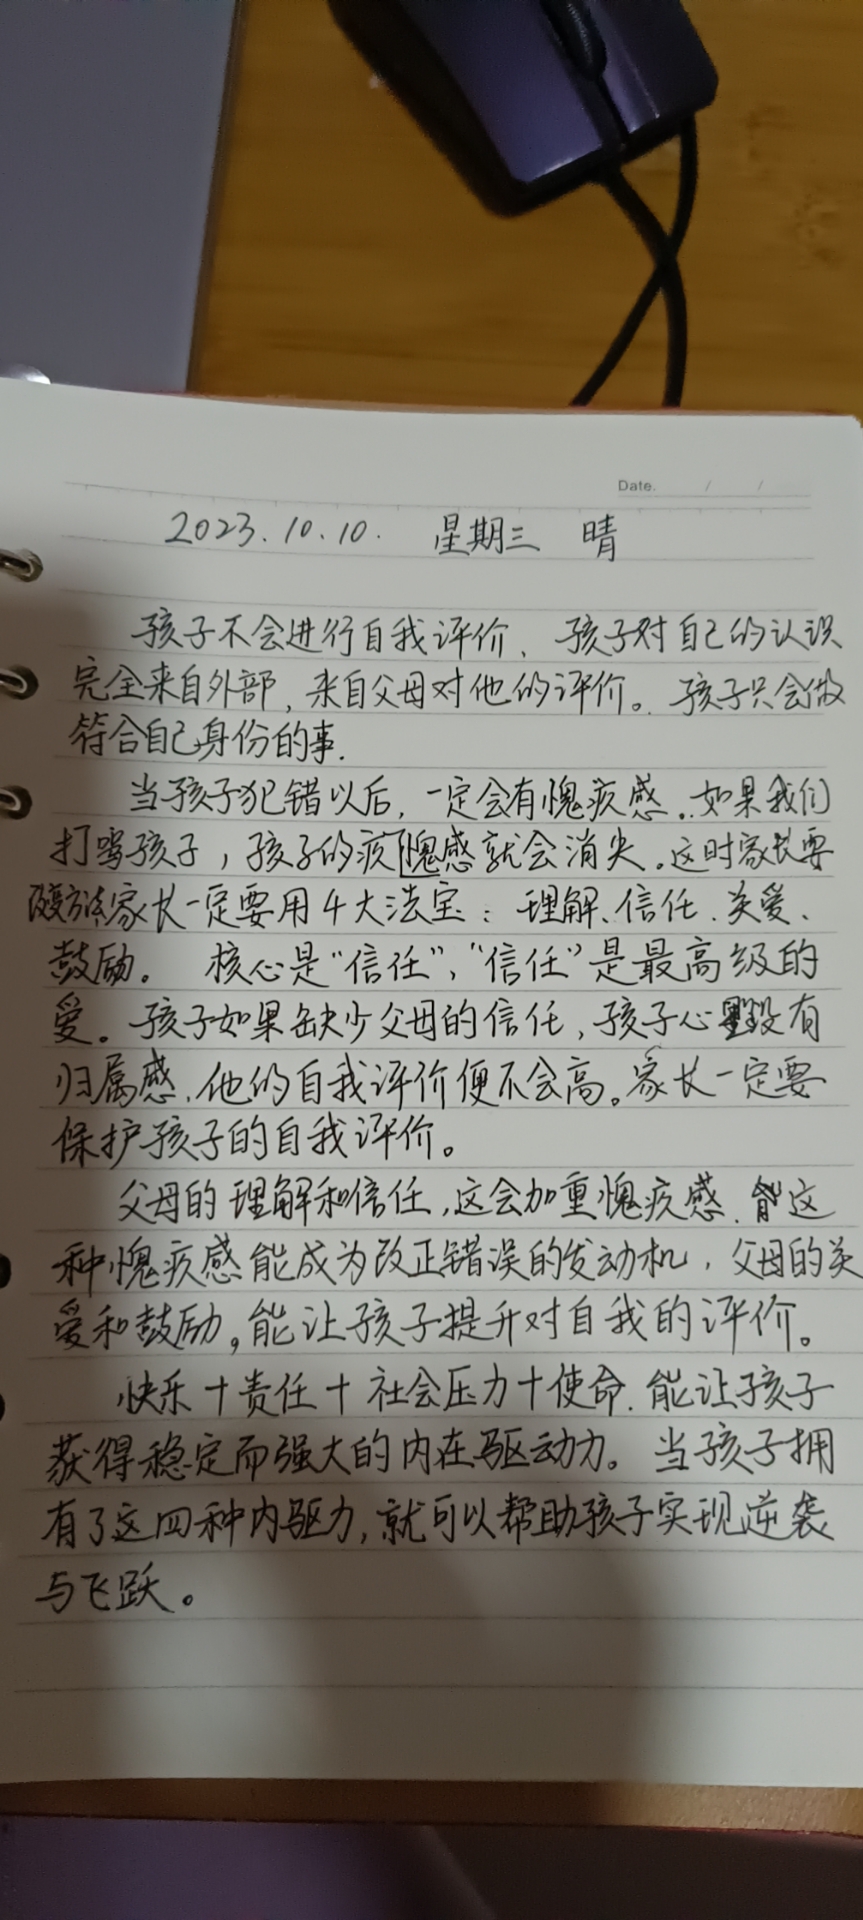 Date. / /
2023.10.10. 星期三 晴
孩子不会进行自我评价、孩子对自己的认识
完全来自外部,来自父母对他的评价。孩子只会做
符合自己身份的事.
当孩子犯错以后,一定会有愧疚感。如果我们
打骂孩子,孩子的疚愧感就会消失。这时家长要
改变方法家长一定要用4大法宝:理解、信任、关爱、
鼓励。 核心是“信任”、“信任”是最高级的
爱。孩子如果缺少父母的信任,孩子心里没有
归属感、他的自我评价便不会高。家长一定要
保护孩子的自我评价。
父母的理解和信任,这会加重愧疚感、这
种愧疚感能成为改正错误的发动机,父母的关
爱和鼓励,能让孩子提升对自我的评价。
快乐+责任+社会压力+使命.能让孩子
获得稳定而强大的内在驱动力。当孩子拥
有了这四种内驱力,就可以帮助孩子实现逆袭
与飞跃。